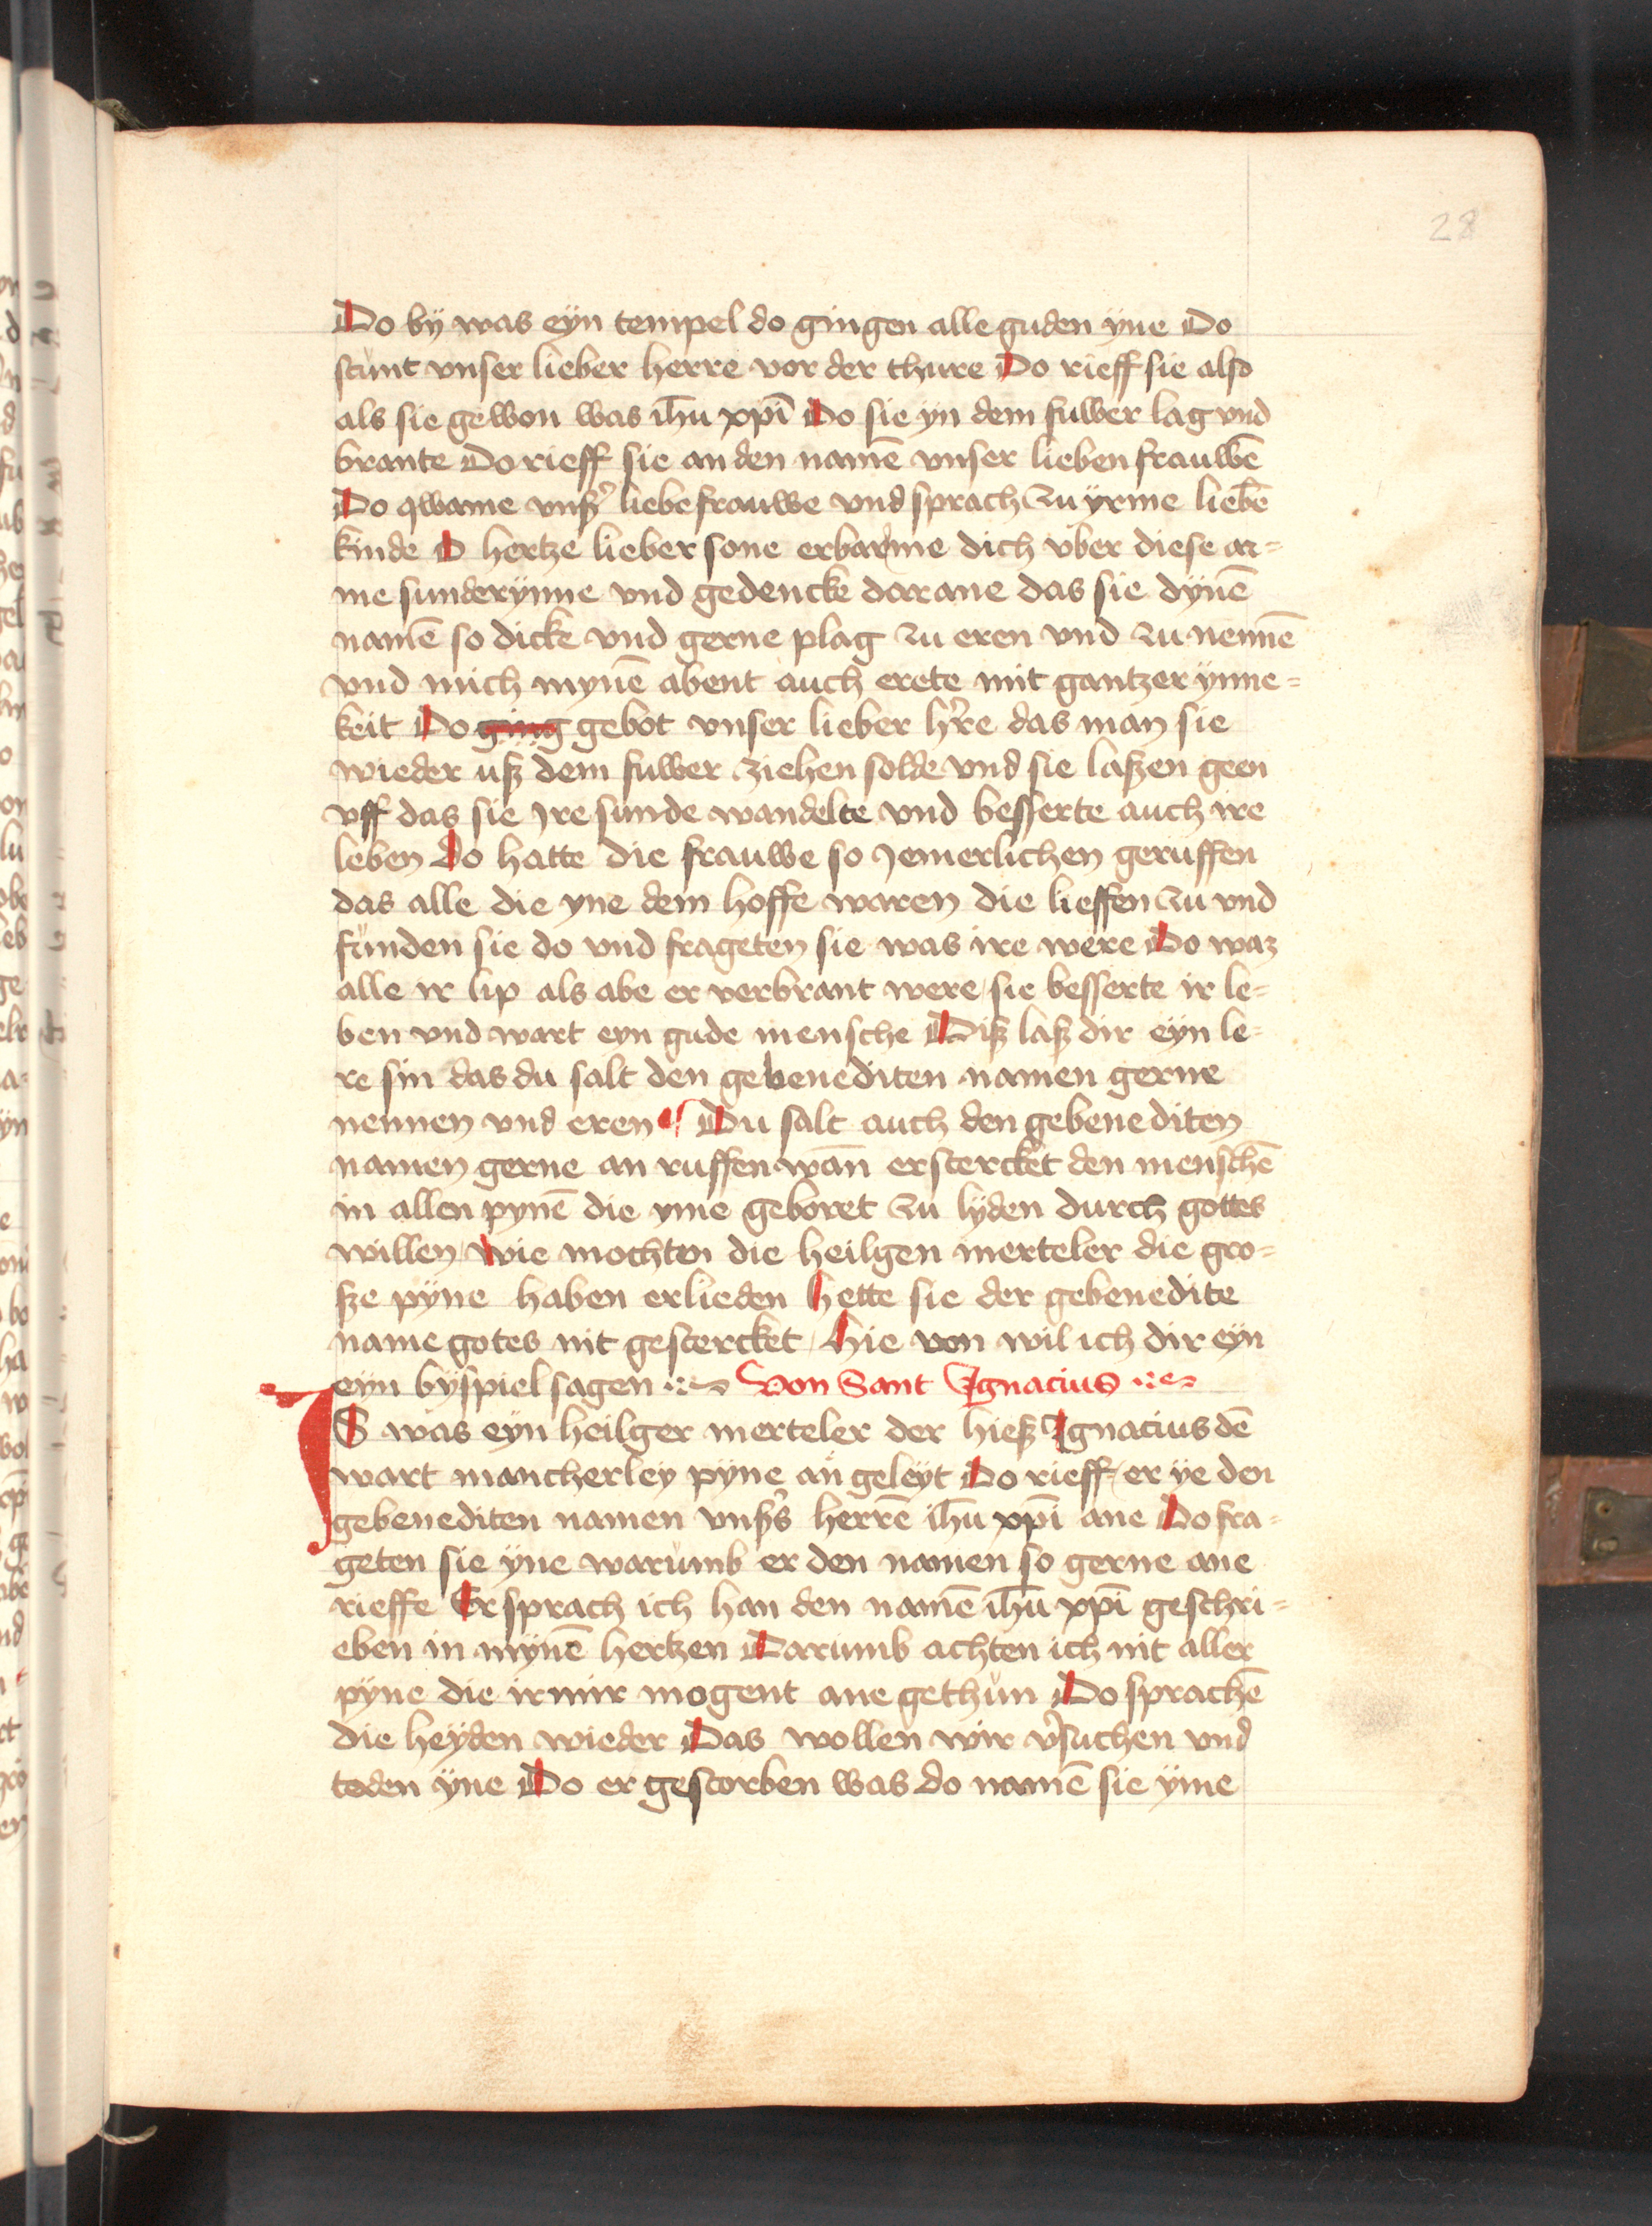 28
Do bÿ was eÿn tempel do gingen alle guden ÿne Do
stunt vnser lieber herre vor der thure Do rieff sie also
als sie gewon was ihū xpī Do sie ÿn dem fuwer lag vnd
brante Do rieff sie an den namē vnser lieben frauwē
Do qwame vnß̉ liebe frauwe vnd sprach zu ÿrme liebē
kinde O hertze lieber sone erbarme dich vber diese ar=
me sunderÿnne vnd gedencke dar ane das sie dÿnē
namē so dicke vnd gerne plag zu eren vnd zu nennē
vnd mich mynē abent auch erete mit gantzer ÿnne=
keit Do ging gebot vnser lieber h̉re das man sie
wieder uß dem fuwer ziehen solde vnd sie laßen geen
vff das sie jre sunde wandelte vnd besserte auch ire
leben do hatte die frauwe so jemerlichen geruffen
das alle die yne dem hoffe waren die lieffen zu vnd
funden sie do vnd frageten sie was ire were Do waz
alle ir lip als abe er verbrant were sie besserte ir le=
ben vnd wart eyn gude mensche Diß laß dir eÿn le=
re sin das du salt den gebenediten namen gerne
nennen vnd eren Du salt auch den gebenediten
namen gerne an ruffen wan̄ er stercket den menschē
in allen pynē die yme geboret zu lÿden durch gottes
willen wie mochten die heilgen merteler die gro=
ße pÿne haben erlieden hette sie der gebenedite
name gotes nit gestercket hie von wil ich dir eÿn
eÿn bÿspiel sagen Von Sant Ignacius
IS was eÿn heilger merteler der hieß Ignacius dē
wart mancherley pÿne an geleÿt Do rieff er ÿe den
gebenediten namen vnß̉s herrē ihū xpī ane Do fra=
geten sie ÿne warumb er den namen so gerne ane
rieffe Er sprach ich han den namē ihū xpī geschri=
eben in mÿnē hertzen Darumb achten ich nit aller
pÿne die ir mir mogent ane gethun Do sprachē
die heÿden wieder Das wollen wir v̉suchen vnd
toden ÿne Do er gestorben was do namē sie ÿme